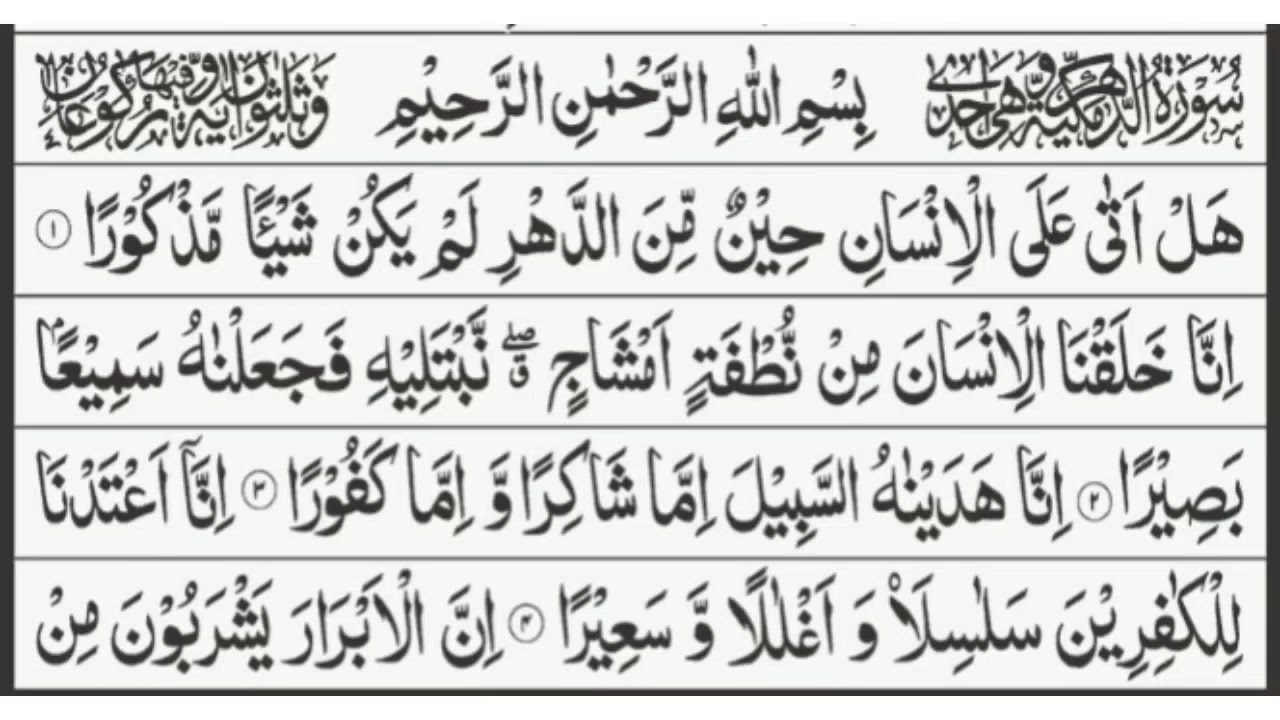 سُوْرَةُ الدَّهْرِ مَكِّيَّةٌ وَّهِيَ اِحْدٰى بِسْمِ اللّٰهِ الرَّحْمٰنِ الرَّحِيْمِ وَثَلٰثُوْنَ اٰيَةً وَّفِيْهَا رُكُوْعَانِ
هَلْ اَتٰى عَلَى الْاِنْسَانِ حِيْنٌ مِّنَ الدَّهْرِ لَمْ يَكُنْ شَيْـًٔا مَّذْكُوْرًا ۝۱
اِنَّا خَلَقْنَا الْاِنْسَانَ مِنْ نُّطْفَةٍ اَمْشَاجٍ ۖۗ نَّبْتَلِيْهِ فَجَعَلْنٰهُ سَمِيْعًاۢ
بَصِيْرًا ۝۲ اِنَّا هَدَيْنٰهُ السَّبِيْلَ اِمَّا شَاكِرًا وَّ اِمَّا كَفُوْرًا ۝۳ اِنَّاۤ اَعْتَدْنَا
لِلْكٰفِرِيْنَ سَلٰسِلَا۠ وَ اَغْلٰلًا وَّ سَعِيْرًا ۝۴ اِنَّ الْاَبْرَارَ يَشْرَبُوْنَ مِنْ